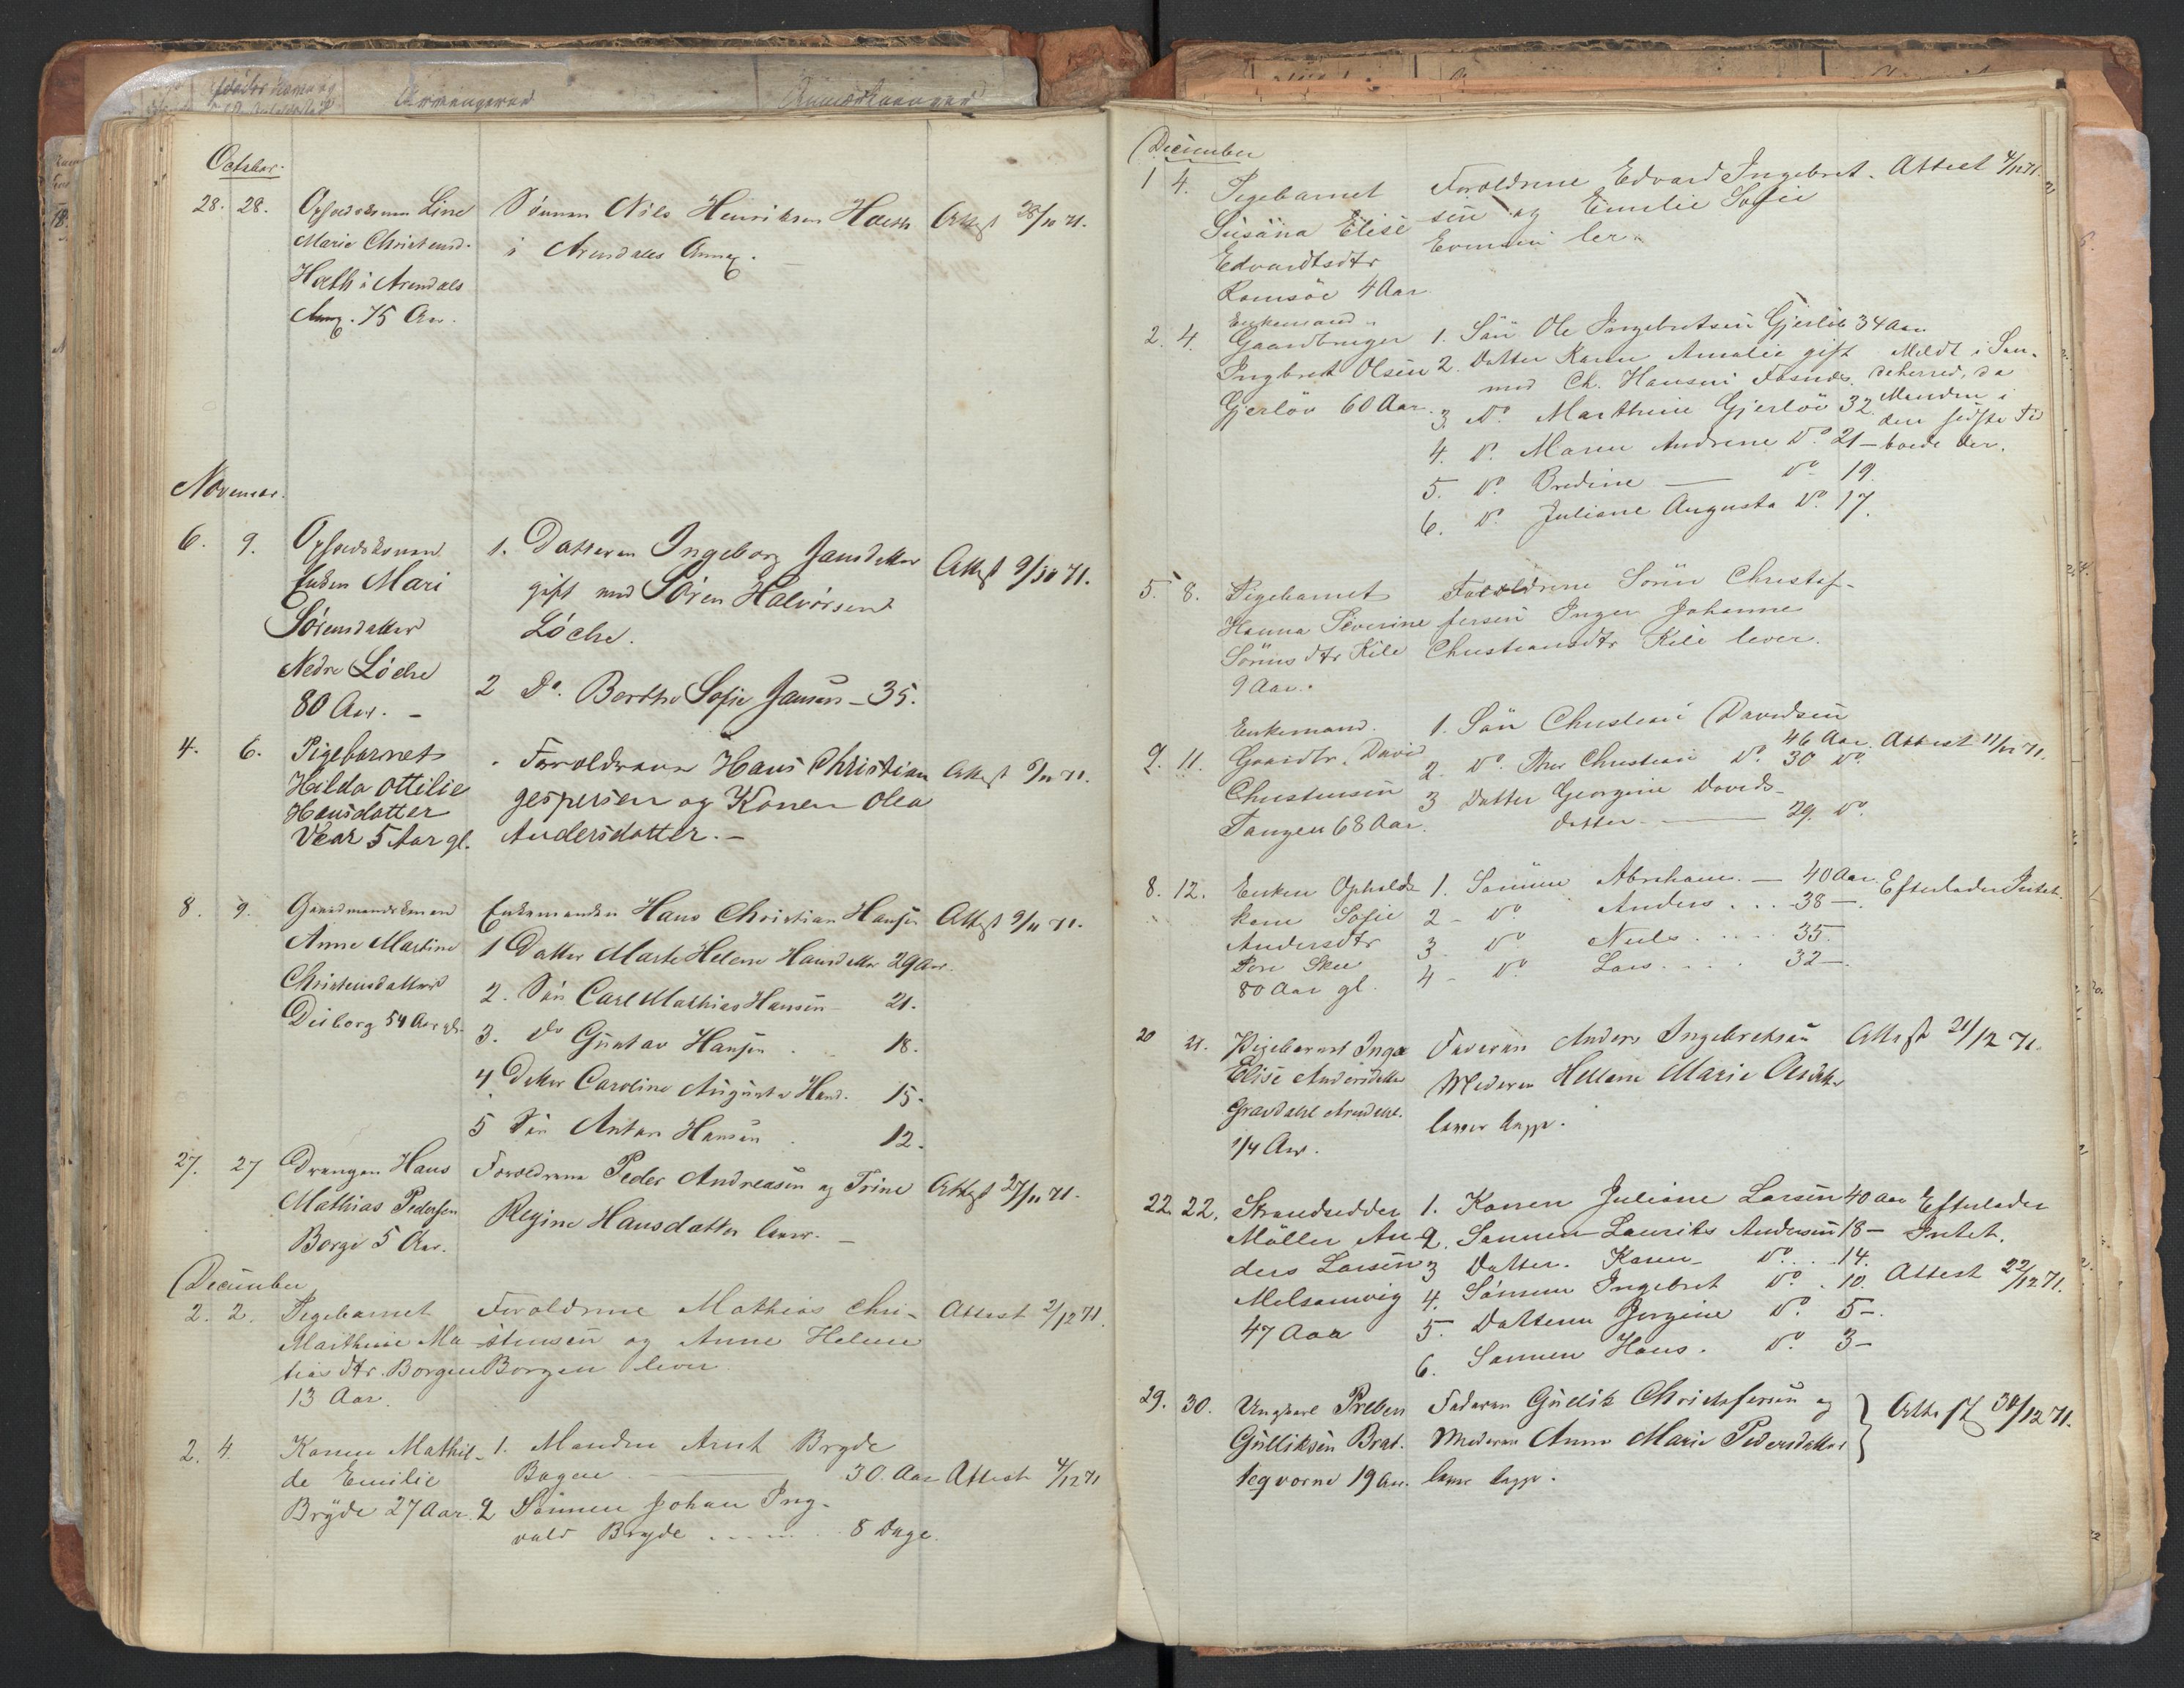 October.
28. 28. Opholdskonen Line Sönnen Nils Henriksen Hoeth Attest 28/10 71.
Marie Christensd. i Arendals Annex.
Hoeth i Arendals
Annex. 75 Aar.
November.
6. 9. Opholdskonen 1. Datteren Ingeborg Jansdatter Attest 9/10 71.
Enken Mari gift med Sören Halvorsen
Sörensdatter Löche.
Nedre Löche 2 Do. Berthe Sofie Jansen - 35.
80 Aar. -
4. 6. Pigebarnet Foreldrene Hans Christian Attest 6/11 71.
Hilda Ottilie Jespersen og Konen Olea
Hansdatter Andersdatter. -
Vear 5 Aar gl.
8. 9. Gaardmandskonen Enkemanden Hans Christian Hansen Attest 9/11 71.
Anne Martine 1 Datter Marte Helene Hansdatter 29 Aar.
Christensdatter 2. Sön Carl Mathias Hansen 21.
54 Aar gl. 3. do Gustav Hansen 18.
4 Datter Caroline Augusta Hansd. 15.
5 Sön Anton Hansen 12.
27. 27 Drengen Hans Foreldrene Peder Andreasen og Trine Attest 27/11 71.
Mathias Pedersen Regine Hansdatter lever. -
Borge 5 Aar.
December
2. 2. Pigebarnet Foreldrene Mathias Chri- Attest 2/12 71.
Marthine Ma- stensen og Anne Helene
tias dtr. Borgen Borgen lever
13 Aar.
2. 4. Konen Mathil- 1. Manden Arnt Bryde
de Emilie Bogen 30. Aar Attest 4/12 71
Bryde 27 Aar. 2 Sönnen Johan Ing-
vald Bryde 8 Dage.
December
1 4. Pigebarnet Foreldrene Edvard Ingebret- Attest 4/12 71.
Susana Elise sen og Emilie Sofie
Edvardtsdtr Evensen lev.
Ramsöe 4 Aar
Enkemand
2. 4. Gaardbruger 1. Sön Ole Ingebretsen Gjerlöv 34 Aar
Ingbret Olsen 2. Datter Karen Amalie gift Meldt i San-
Gjerlöv 60 Aar. med Ch. Hansen Fosnæs. deherred, da
3. Do. Marthine Gjerlöv 32. Manden i
4. Do. Maren Andrine Do. 21 - den sidste Tid
5. Do. Bredine — Do 19. boede der.
6. Do. Juliane Augusta Do. 17.
5. 8. Pigebarnet Foreldrene Sörin Christof-
Hanna Severine fersen Inger Johanne
Sörins dtr Kile Christiansdtr Kile lever.
9 Aar.
Enkemand. 1. Sön Christian Davidsen
9. 11. Gaardbr. David 46 Aar. Attest 11/12 71.
Christensen 2. Do. Thor Christian Do. 30 Do.
Tangen 68 Aar. 3 Datter Georgine Davids-
datter — 29. Do.
8. 12. Enken Opholds- 1. Sönnen Abraham. — 40 Aar. Efterlader Intet.
kone Sofie 2 - Do Anders . . . 38 —.
Andersdtr 3 Do Neils . . . . 35.
Skee 4 - Do. Lars . . . . 32 —.
80 Aar gl.
20 21. Pigebarnet Inga Faderen Anders Ingebretsen Attest 21/12 71.
Elise Andersdatter Moderen Hellene Marie Olsdatter
Gravdahl Arendahl. lever begge.
1/4 Aar.
22. 22. Strandsidder 1. Konen Juliane Larsen 40 Aar Efterlader
Möller An- 2. Sönnen Laurits Andersen 18 - Intet.
ders Larsen 3 Datter. Karen Do. . . 14.
Melsomvig 4. Sönnen Ingebret Do. . 10. Attest 22/12 71.
47 Aar 5. Datteren Jorgine Do. 5 -.
6. Sönnen Hans. Do. 3 -
29. 30. Ungkarl Preben Faderen Gullik Christofersen og Attest 30/12 71.
Gulliksen Brat- Moderen Anne Marie Pedersdatter
tegvorne 19 Aar. lever begge.